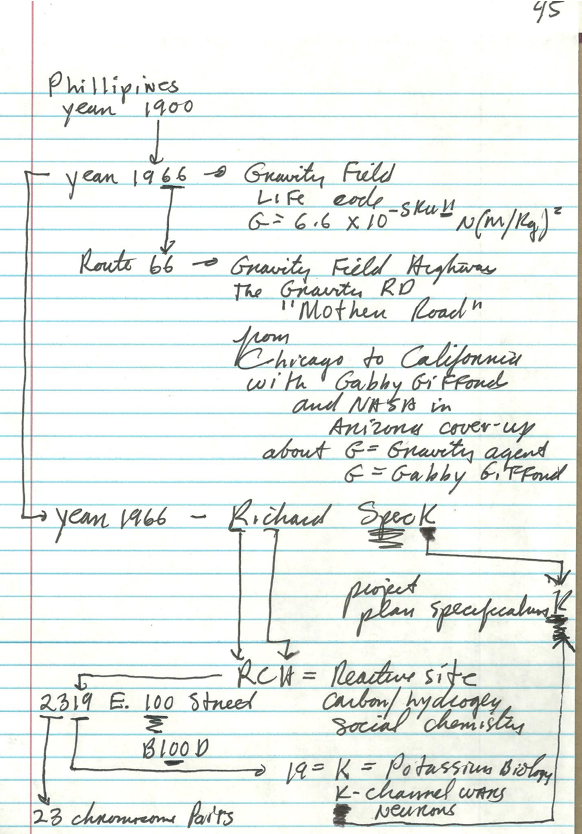 45
Phillipines
year 1900
year 1966 → Gravity Field
Life code
G = 6.6 x 10^-skull N(m/kg)²
Route 66 → Gravity Field Highway
The Gravity RD
"Mother Road"
from
Chicago to California
with Gabby Gifford
and NASA in
Arizona cover-up
about G = Gravity agent
G = Gabby Gifford
year 1966 - Richard Speck
project
plan specifications K
RCH = Reactive site
2319 E. 100 Street
Carbon/hydrogen
social chemistry
B100D
19 = K = Potassium Biology
K-channel wars
Neurons
23 chromosome pairs